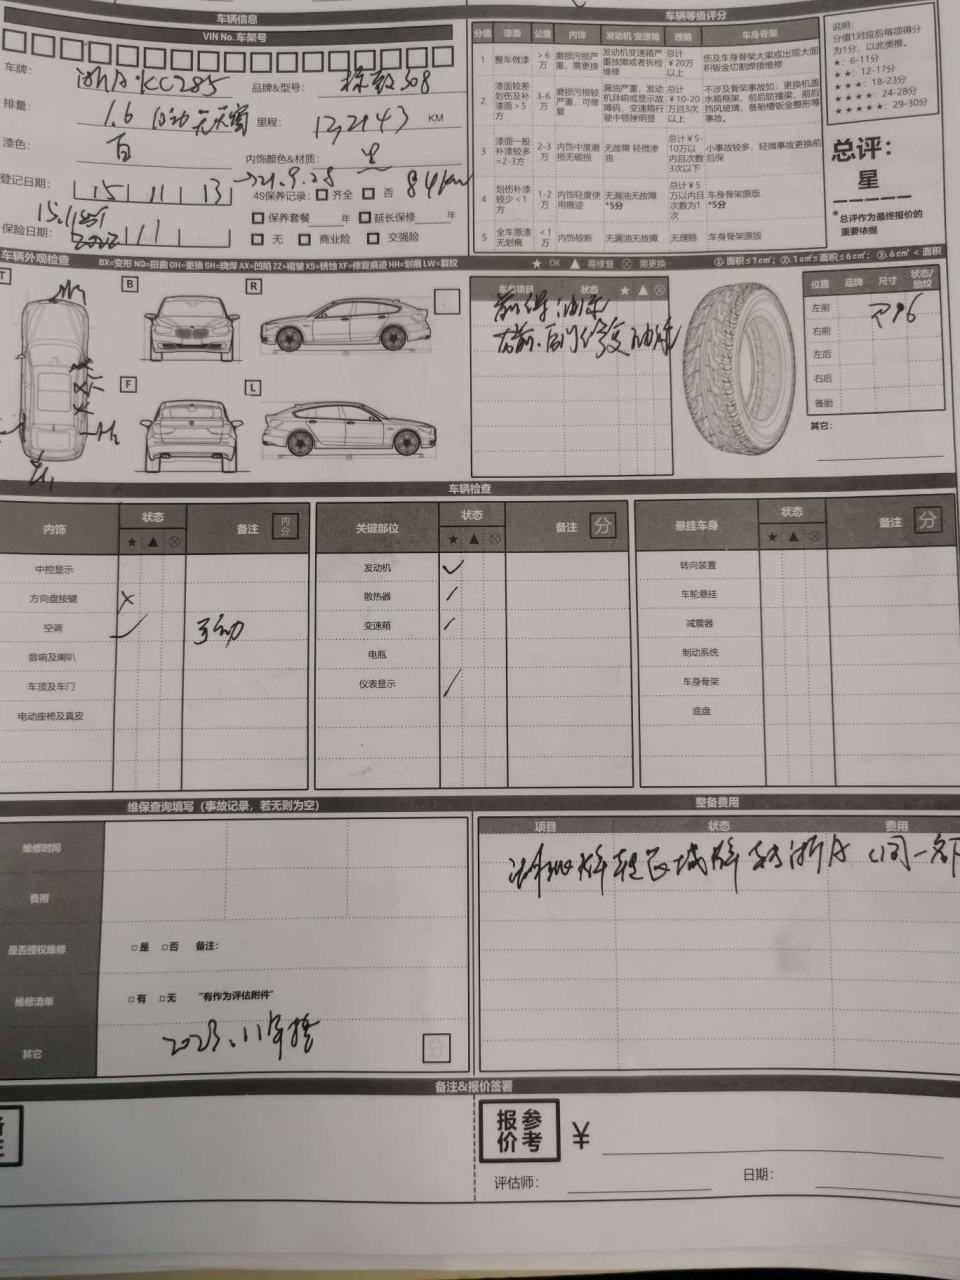 车辆信息
VIN No. 车架号
车牌: 浙A·KC285 品牌&型号: 标致308
排量: 1.6 自动 无天窗 里程: 122143 KM
漆色: 白 内饰颜色&材质:
登记日期: 15 11 13 4S保养记录: 齐全 否
→21.9.28 84km
保养套餐 年 延长保修 年
保险日期: 无 商业险 交强险
车辆等级评分
分值 漆面 公里 内饰 发动机 变速箱 理赔 车身骨架
1 整车做漆 >6万 磨损污损严重，需更换 发动机变速箱严重故障或者拆检维修 总计¥20万以上 伤及车身骨架大梁或出现大面积钣金切割焊接维修
2 漆面较差划伤及补漆面>5方 3-6万 磨损污损较严重，可修复 漏油严重，发动机异响或显示故障码，变速箱行驶中顿挫明显 总计¥10-20万目3次以上 不涉及骨架事故如：更换机盖水箱框架，前后防撞梁，前后挡风玻璃，备胎槽钣金整形等事故。
3 漆面一般补漆较多=2-3方 2-3万 内饰中度磨损无破损 无故障 轻微渗油 总计¥5-10万以内目次数3次以下 小事故较多，轻微事故更换前后保
4 划伤补漆较少<1方 1-2万 内饰轻度使用痕迹 无漏油无故障*5分 总计¥5万以内目次数为1次 车身骨架原版*5分
5 全车原漆无划痕 <1万 内饰较新 无漏油无故障 无理赔 车身骨架原版
说明:
分值1对应后每项得分为1分，以此类推。
★: 6-11分
★★: 12-17分
★★★: 18-23分
★★★★: 24-28分
★★★★★: 29-30分
总评:
星
*总评作为最终报价的重要依据
车辆外观检查 BX=变形 NQ=扭曲 GH=更换 SH=烧焊 AX=凹陷 ZZ=褶皱 XS=锈蚀 XF=修复痕迹 HH=划痕 LW=裂纹
★ OK ▲ 需修复 ⊗ 需更换 ①.面积≤1cm²; ②.1cm²≤面积≤6cm²; ③.6cm²<面积
T B R F L
车身项目 状态 ★ ▲ ⊗
位置 品牌 尺寸 状态/胎纹
左前
右前
左后
右后
备胎
其它:
车辆检查
内饰 状态 备注 内分
★ ▲ ⊗
中控显示
方向盘按键
空调 手动
音响及喇叭
车顶及车门
电动座椅及真皮
关键部位 状态 备注 分
★ ▲ ⊗
发动机
散热器
变速箱
电瓶
仪表显示
悬挂车身 状态 备注 分
★ ▲ ⊗
转向装置
车轮悬挂
减震器
制动系统
车身骨架
底盘
维保查询填写（事故记录，若无则为空）
维修时间
费用
是否授权维修 □是 □否 备注:
维修清单 □有 □无 "有作为评估附件"
其它 2023.11年
分
整备费用
项目 状态 费用
备注&报价签署
参考报价 ¥
评估师: 日期: